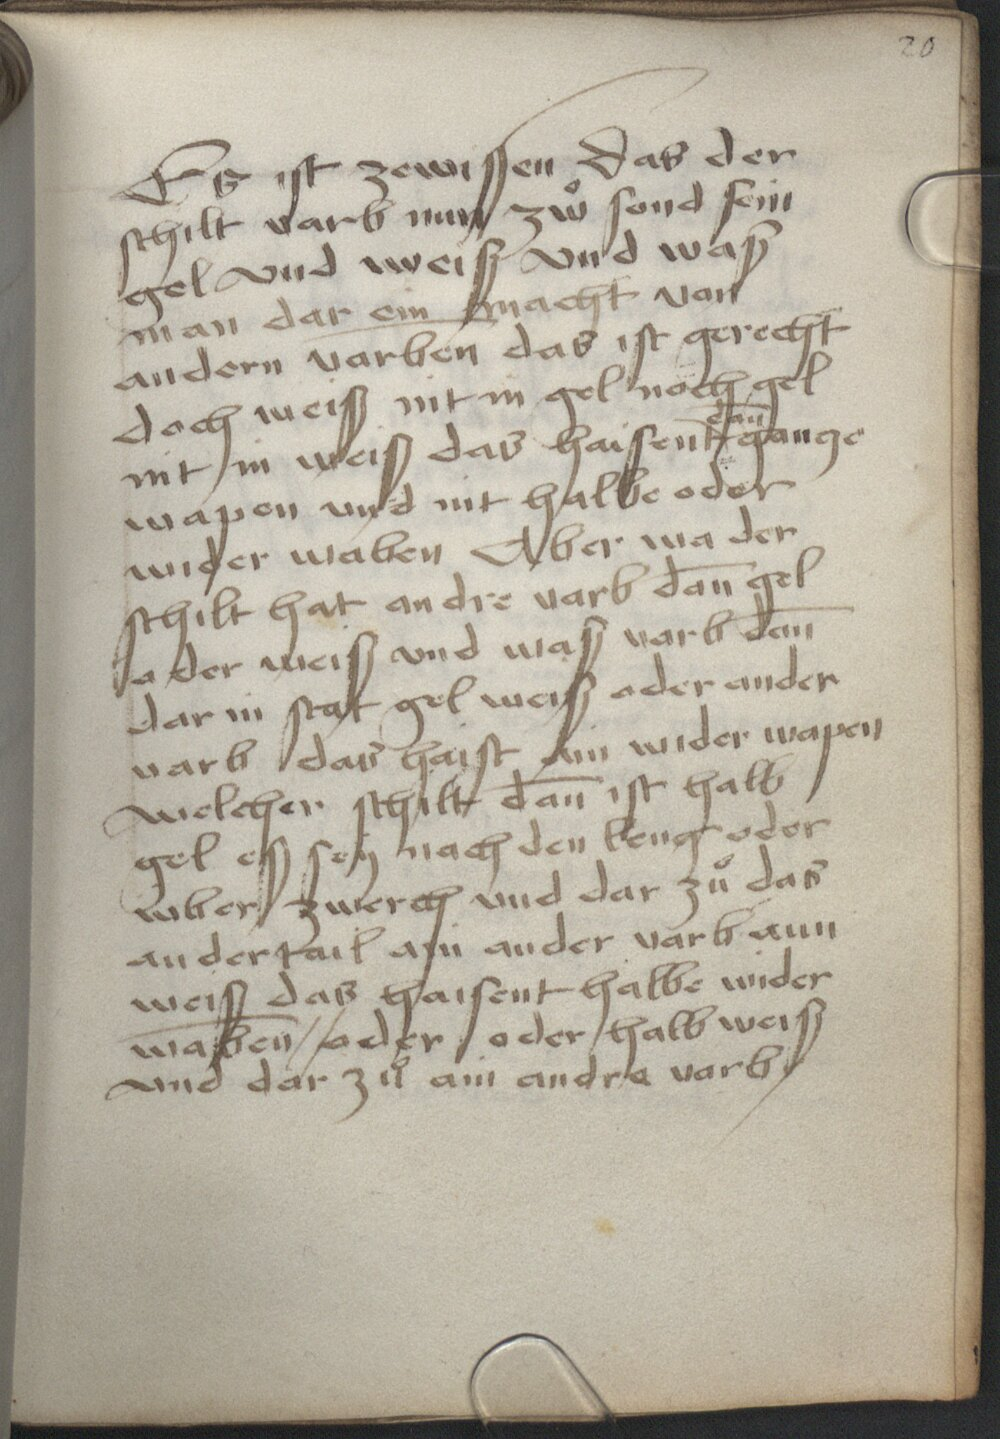 20
Es ist zewissen das der
schilt varb nun zwͦ sond sein
gel vnd weiß vnd waß
man dar ein macht von
andern varben das ist gerecht
doch weiß nit in gel noch gel
dan̄
nit in weiß das haisent gancze
wapen vnd nit halbe oder
wider waben Aber wa der
schilt hat andre varb dan̄ gel
oder weiß vnd waß varb dan̄
dar in stat gel weiß oder ander
varb das haist ain wider wapen
welcher schilt dan̄ ist halb
gel eß seÿ nach den leng oder
vber zwerch vnd dar zuͦ das
ander tail ain ander varb aun
weiß das haisent halbe wider
waben // oder oder halb weiß
vnd dar zuͦ ain andra varb